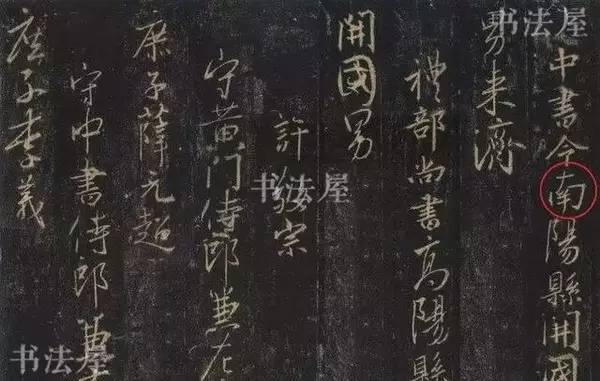 中書令南陽縣開國
男来濟
禮部尚書高陽縣
開國男
許敬宗
守黄門侍郎兼左
庶子薛元超
守中書侍郎兼
庶子李義
书法屋
书法屋
书法屋